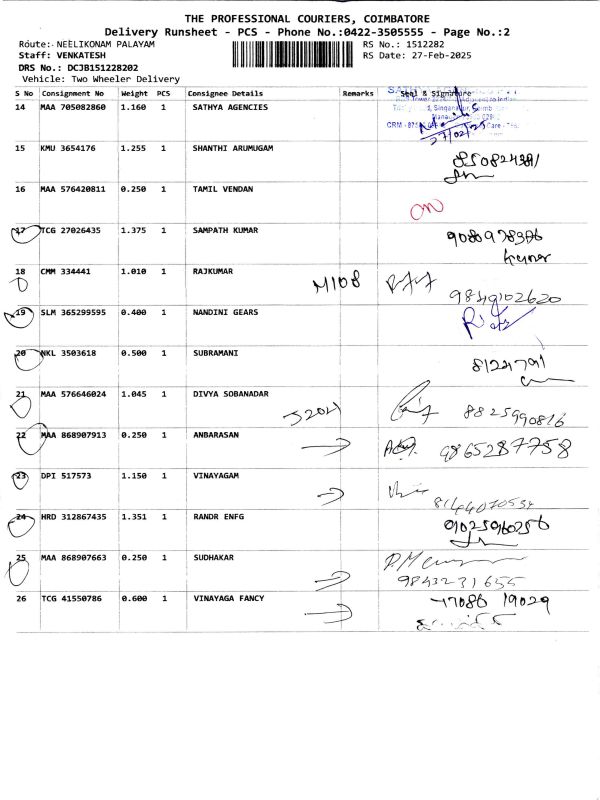 THE PROFESSIONAL COURIERS, COIMBATORE
Delivery Runsheet - PCS - Phone No.:0422-3505555 - Page No.:2
Route: NEELIKONAM PALAYAM RS No.: 1512282
Staff: VENKATESH RS Date: 27-Feb-2025
DRS No.: DCJB151228202
Vehicle: Two Wheeler Delivery
S No Consignment No Weight PCS Consignee Details Remarks Seal & Signature
14 MAA 705082860 1.160 1 SATHYA AGENCIES
27/02/25
15 KMU 3654176 1.255 1 SHANTHI ARUMUGAM
16 MAA 576420811 0.250 1 TAMIL VENDAN
17 TCG 27026435 1.375 1 SAMPATH KUMAR
18 CMM 334441 1.010 1 RAJKUMAR M108
9849102620
19 SLM 365299595 0.400 1 NANDINI GEARS
20 NKL 3503618 0.500 1 SUBRAMANI
21 MAA 576646024 1.045 1 DIVYA SOBANADAR
8825990816
22 MAA 868907913 0.250 1 ANBARASAN 9865287758
23 DPI 517573 1.150 1 VINAYAGAM
24 HRD 312867435 1.351 1 RANDR ENFG
25 MAA 868907663 0.250 1 SUDHAKAR
9843231655
26 TCG 41550786 0.600 1 VINAYAGA FANCY